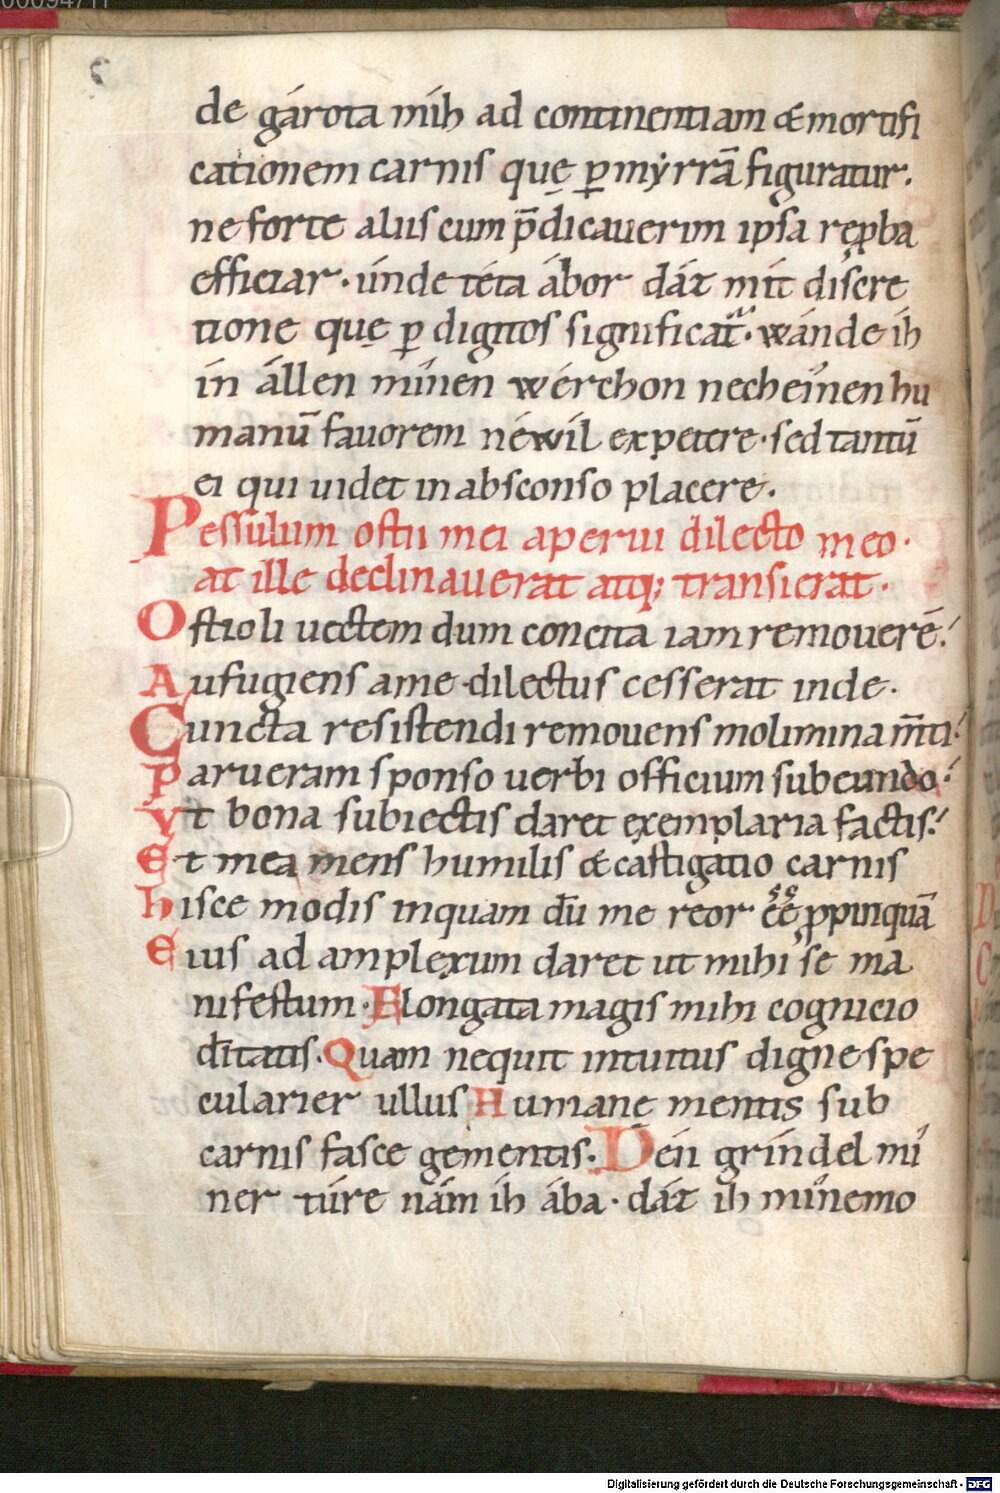 de gárota mih ad continentiam & mortifi
cationem carnis quę p̲ mẏrrā figuratur.
ne forte aliis cum p̄dicauerim ipsa rep̱ba
efficiar. únde téta ábor dáz mit discre
tione quę p̲ digitos significat̄. wánde ih
in állen mínen wérchon necheinen hu
manū fauorem néwil expetere. sed tantū
ei qui uidet in absconso placere.
Pessulum ostii mei aperui dilecto meo.
at ille declinauerat atq; transierat.
Ostioli uectem dum concita iam remouerē.
Aufugiens a me dilectus cesserat inde.
Cuncta resistendi remouens molimina m̄ti
Parueram sponso uerbi officium subeundo.
Vt bona subiectis daret exemplaria factis.
Et mea mens humilis & castigatio carnis
hisce modis inquam dū me reor ēē p̱pinquā
Eius ad amplexum daret ut mihi se ma
nifestum. Elongata magis mihi cognicio
d̄itatis. Quam nequit intuitus digne spe
cularier ullus Humane mentis sub
carnis fasce gementis. Den gríndel mí
ner túre nám ih ába. dáz ih mínemo
Digitalisierung gefördert durch die Deutsche Forschungsgemeinschaft - DFG